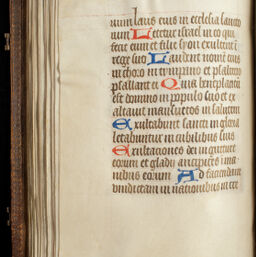 num laus eius in ecclesia sancto
rum Letetur israel in eo qui
fecit eum et filie syon exultent i
rege suo Laudent nomē eius
in choro in tympano et psalterio
psallant ei Quia beneplacitū
est domino in populo suo et ex
altauit mansuetos in salutem
Exultabunt sancti in gloria
letabuntur in cubilibus suis
Exultaciones dei in gutture
eorum et gladii ancipites i ma
nibus eorum Ad faciendam
vindictam in nationibus in cre